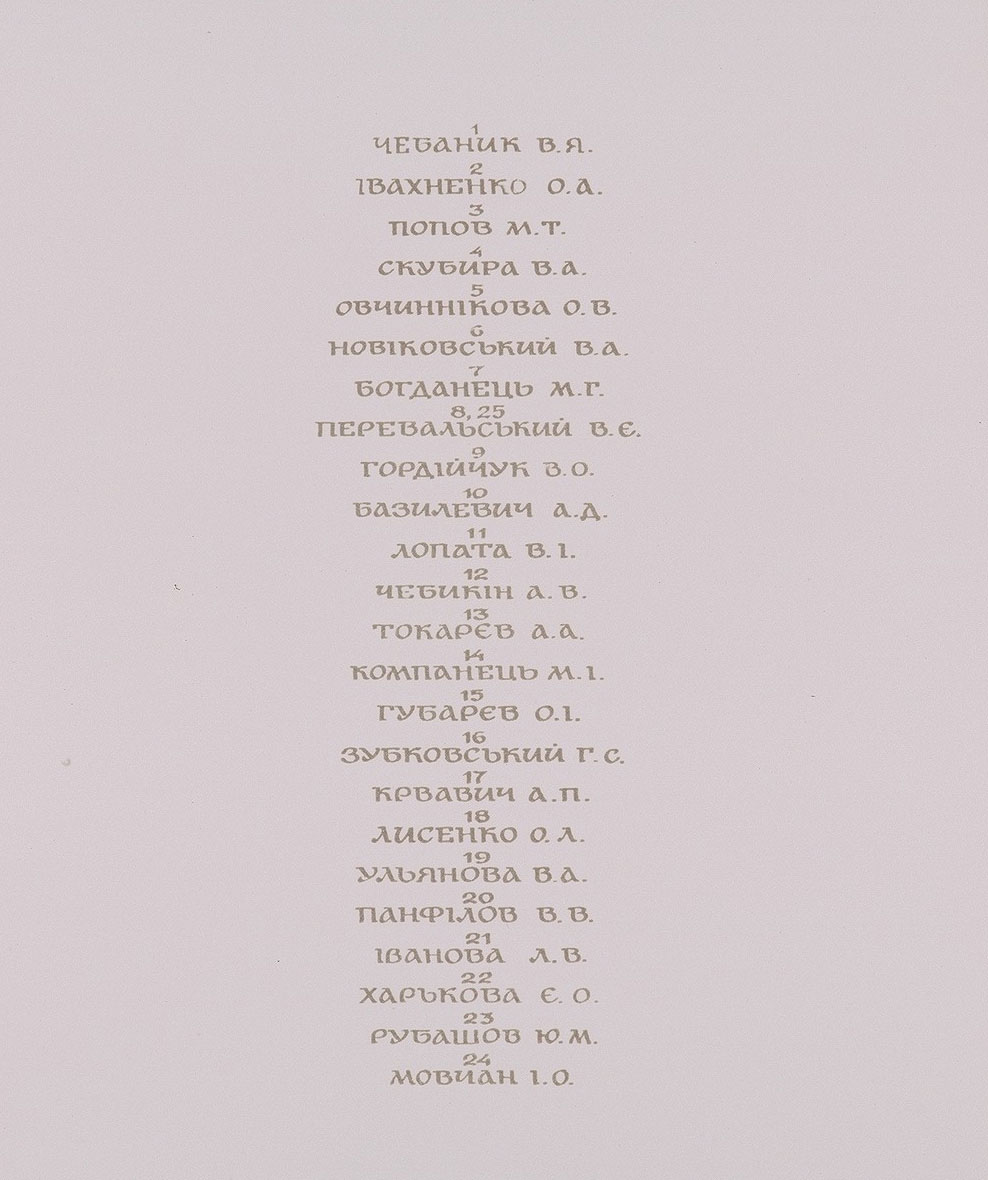 1
ЧЕБАНИК В.Я.
2
ІВАХНЕНКО О.А.
3
ПОПОВ М.Т.
4
СКУБИРА В.А.
5
ОВЧИННІКОВА О.В.
6
НОВІКОВСЬКИЙ В.А.
7
БОГДАНЕЦЬ М.Г.
8, 25
ПЕРЕВАЛЬСЬКИЙ В.Є.
9
ГОРДІЙЧУК В.О.
10
БАЗИЛЕВИЧ А.Д.
11
ЛОПАТА В.І.
12
ЧЕБИКІН А.В.
13
ТОКАРЄВ А.А.
14
КОМПАНЕЦЬ М.І.
15
ГУБАРЄВ О.І.
16
ЗУБКОВСЬКИЙ Г.С.
17
КРВАВИЧ А.П.
18
ЛИСЕНКО О.Л.
19
УЛЬЯНОВА В.А.
20
ПАНФІЛОВ В.В.
21
ІВАНОВА Л.В.
22
ХАРЬКОВА Є.О.
23
РУБАШОВ Ю.М.
24
МОВИАН І.О.